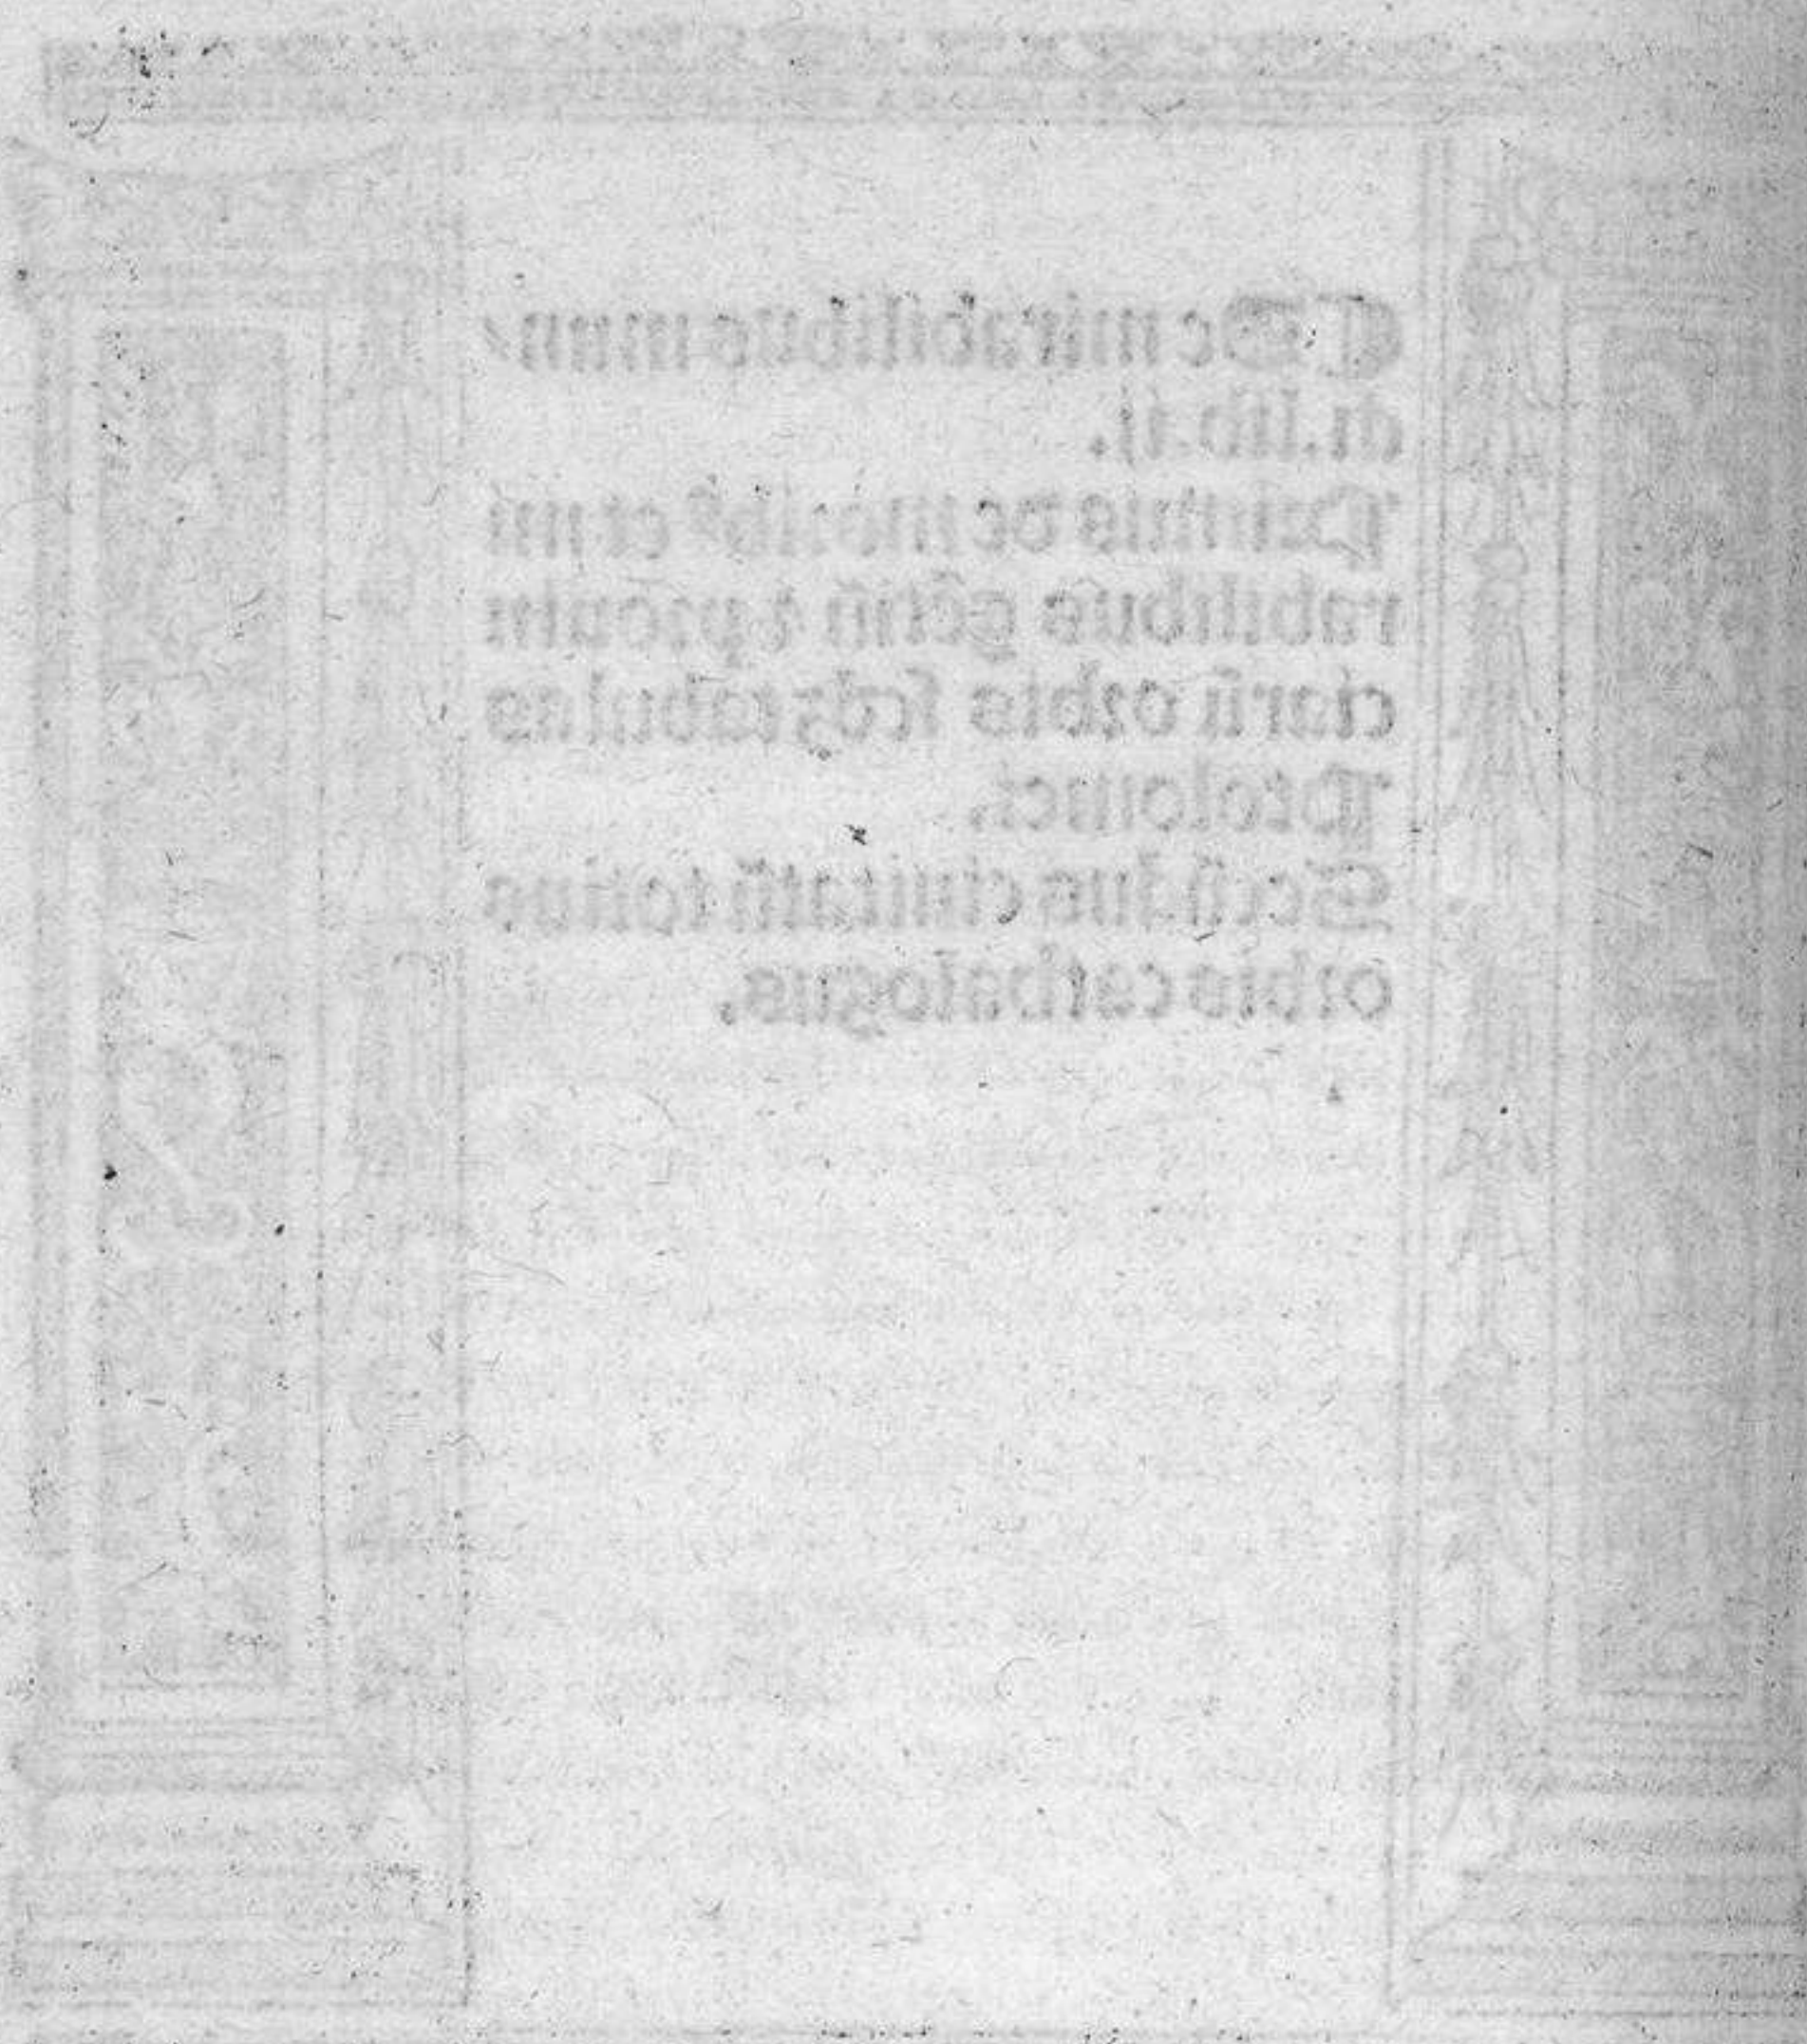 ¶De mirabilibus mun⸗
di.lib.ij.
Primus de morib⁹ et mi
rabilibus gētiū ⁊ prouin
ciarū orbis scdꝫ tabulas
Ptolomei.
Secūdus ciuitatū totius
orbis cathalogus.